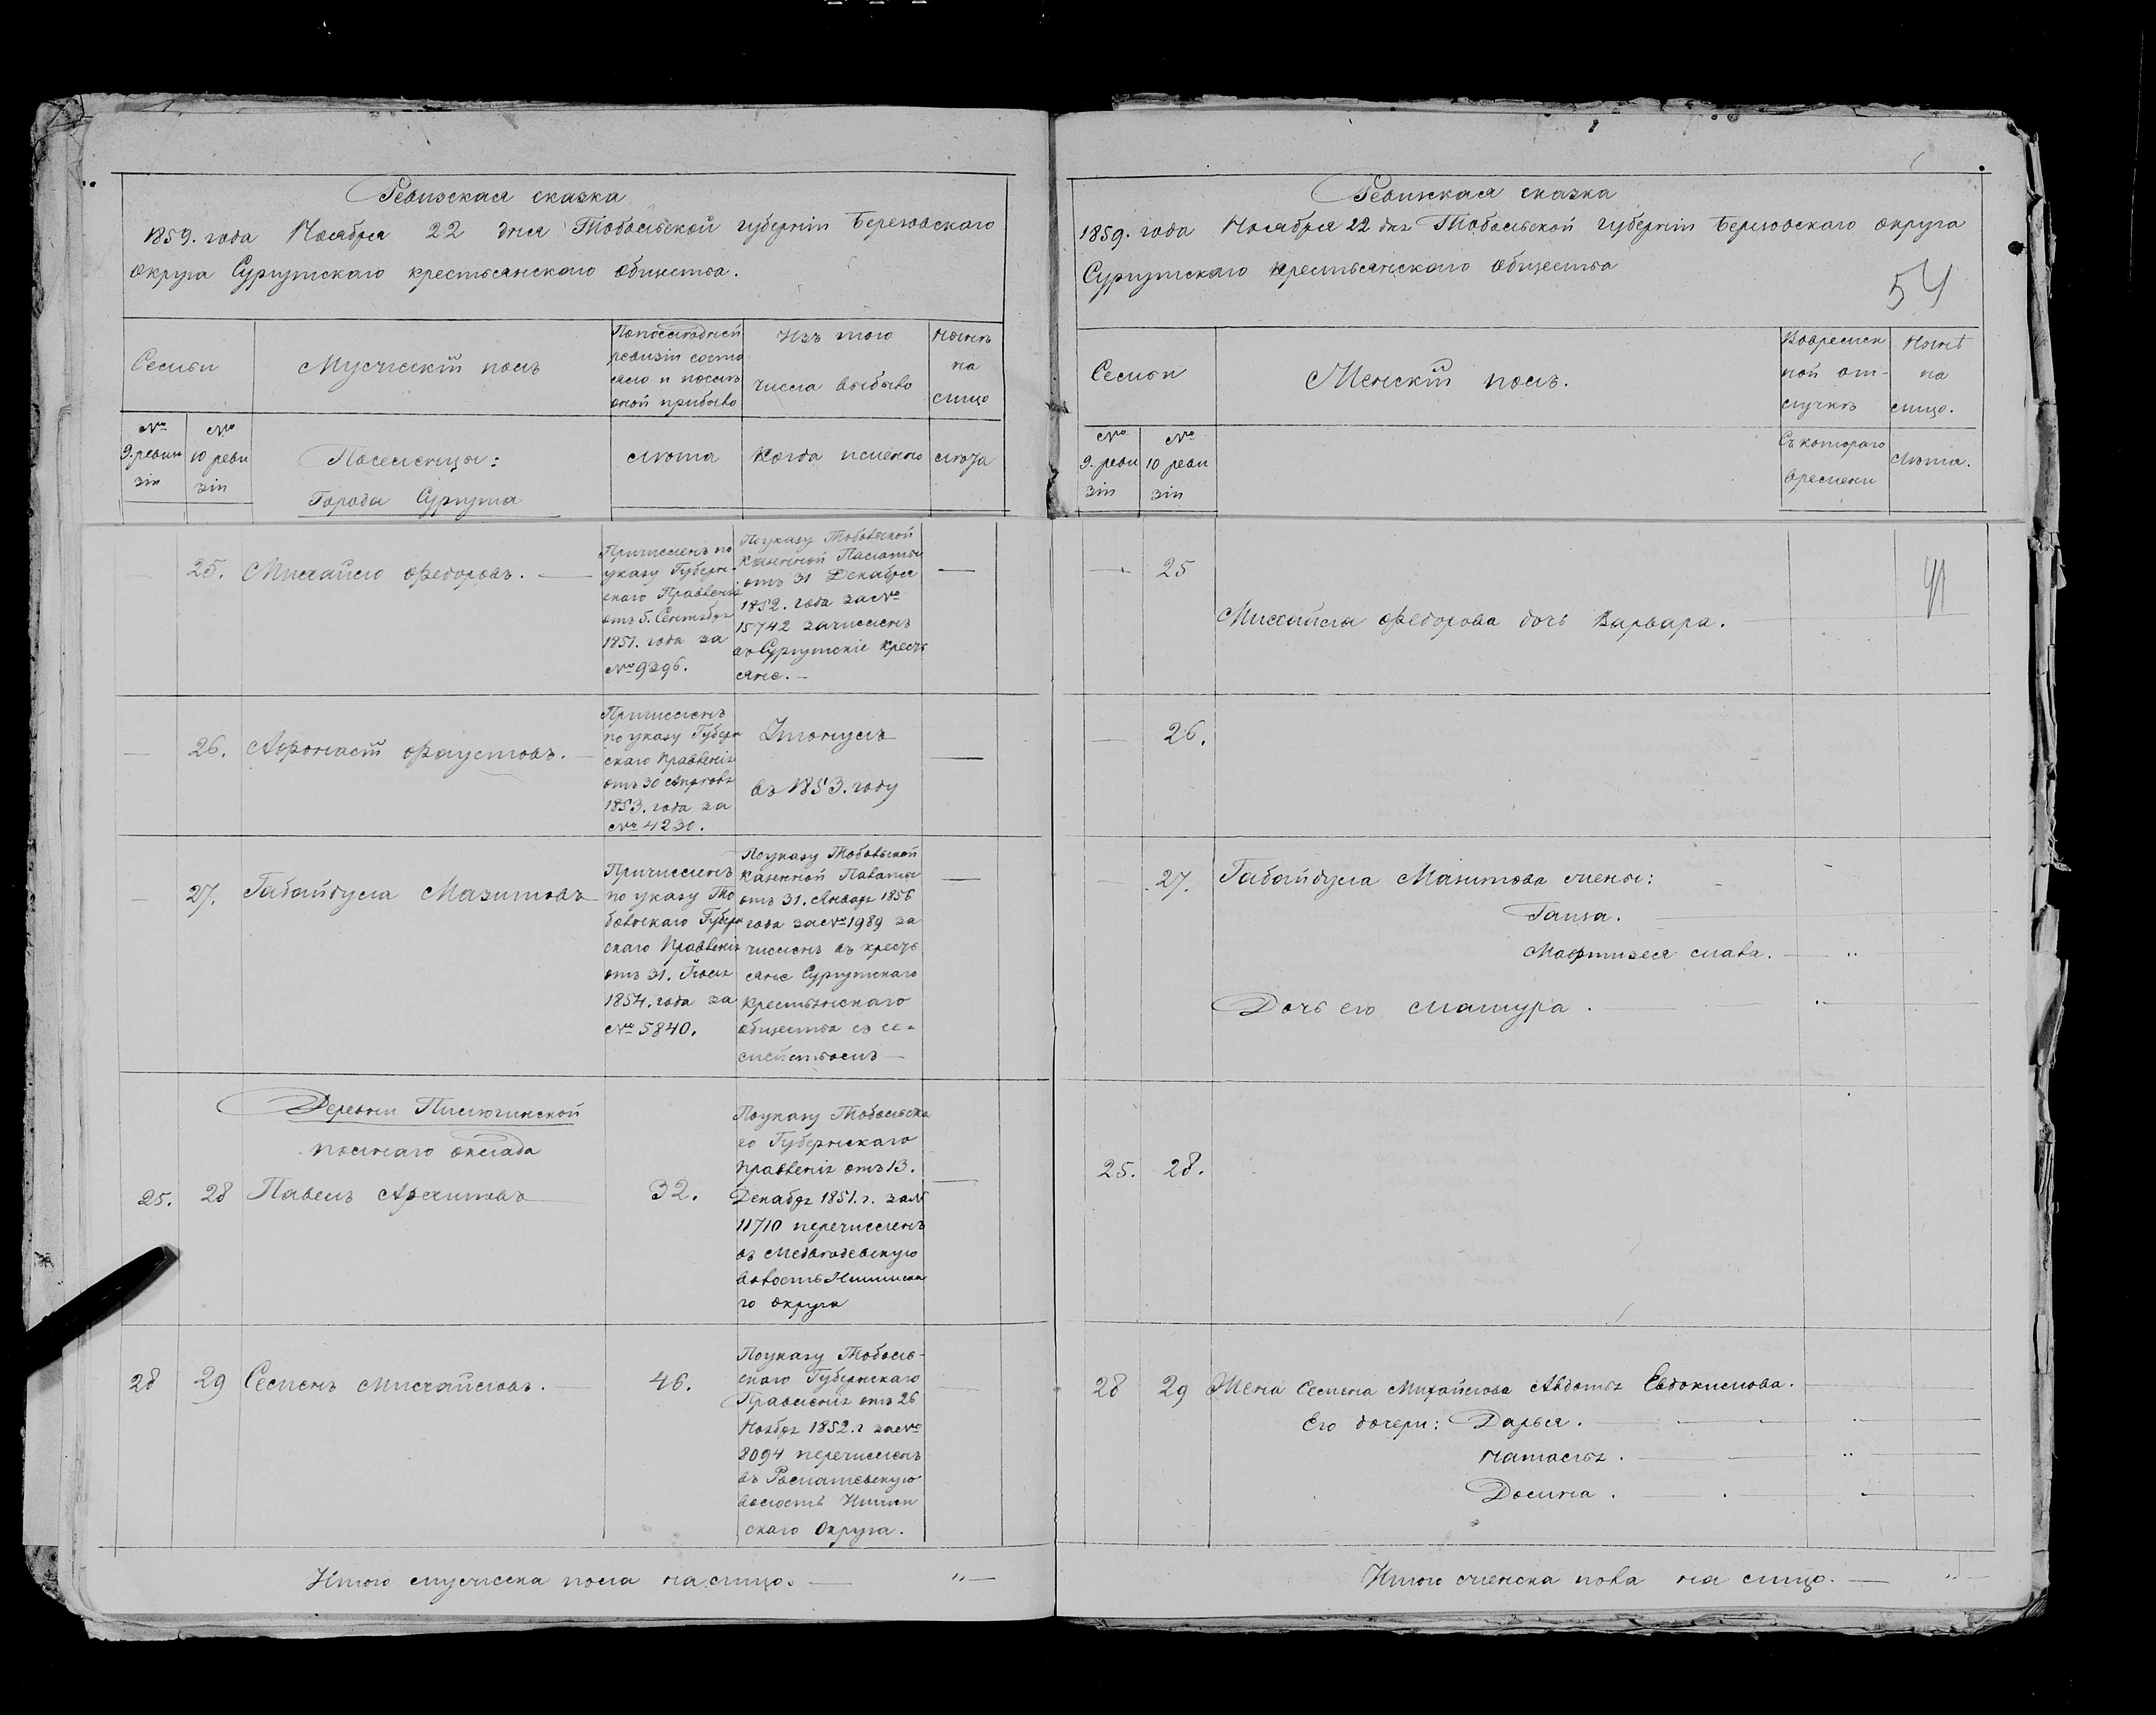 Ревизская сказка
1859. года Ноября 22 дня Тобольской губернiи Березовскаго
округа Сургутскаго крестьянскаго общества.
Семьи
Мужескiй полъ
По последней
ревизiи состо
яло и после
оной прибыло
Изъ того
числа выбыло
Ныне
на
лицо
№
9. реви
зiи
№
10 реви
зiи
Поселенцы:
Города Сургута
лета
Когда именно
лета
25. Михайло Федоровъ.
Причисленъ по
указу Губерн-
скаго Правленiя
отъ 5. Сентября
1851. года за
№ 9296.
По указу Тобольской
Казенной Палаты
отъ 31 Декабря
1852. года за №
15742 зачисленъ
въ Сургутскiе кресть
яне.
26. Афонасiй Фаустовъ.
Причисленъ
по указу Губерн
скаго Правленiя
отъ 30 Апреля
1853. года за
№ 4230.
Утонулъ
въ 1853. году
27. Габайдула Мазитовъ
Причисленъ
по указу То
больскаго Губерн
скаго Правленiя
отъ 31. Iюля
1854. года за
№ 5840.
По указу Тобольской
Казенной Палаты
отъ 31. Января 1856
года за № 1989 за
численъ въ кресть
яне Сургутскаго
крестьянскаго
общества съ се-
мействомъ
Деревни Пилюгинской
полнаго оклада
25. 28 Павелъ Архиповъ
32.
По указу Тобольска
го Губернскаго
Правленiя отъ 13.
Декабря 1851. г. за №
11710 перечисленъ
въ Медведевскую
волость Ишимска
го округа
28 29 Семенъ Михайловъ.
46.
По указу Тоболь-
скаго Губернскаго
Правленiя отъ 26
Ноября 1852. г за №
8094 перечисленъ
въ
волость Ишим
скаго Округа.
Итого мужеска пола на лицо.
Ревизская сказка
1859. года Ноября 22 дня Тобольской губернiи Березовскаго округа
Сургутскаго крестьянскаго общества
54
Семьи
Женскiй полъ.
Во времен
ной от-
лучке
Ныне
на
лицо.
№
9. реви
зiи
№
10 реви
зiи
Съ котораго
времени
Лета.
25
Михайла Федорова дочь Варвара.
26.
27. Габайдула Мазитова жены:
Дочь его
25. 28.
28 29 Жена Семена Михайлова Авдотья Евдокимова.
Его дочери: Дарья.
Наталья.
Домна.
Итого женска пола на лицо.